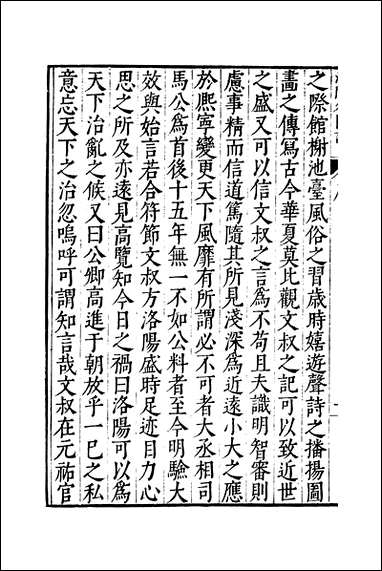 之際館榭池臺風俗之習歲時嬉遊聲詩之播揚圖
畵之傳寫古今華夏莫比觀文叔之記可以致近世
之盛又可以信文叔之言爲不苟且夫識明智審則
慮事精而信道篤隨其所見淺深爲近遠小大之應
於熈寧變更天下風靡有所謂必不可者大丞相司
馬公爲首後十五年無一不如公料者至今明驗大
效與始言若合符節文叔方洛陽盛時足迹目力心
思之所及亦遠見高覽知今日之禍曰洛陽可以爲
天下治亂之候又曰公卿高進于朝放乎一巳之私
意忘天下之治忽嗚呼可謂知言哉文叔在元祐官